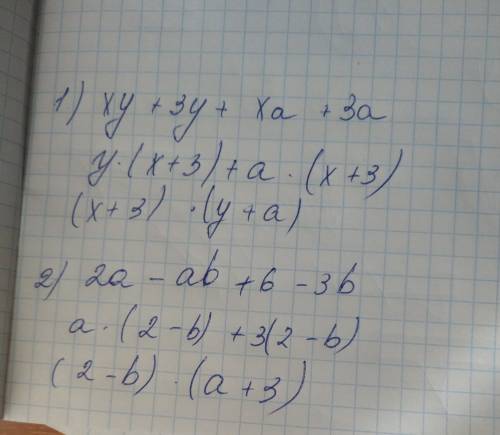 1) xy + 3y + xa + 3a
y·(x+3)+a·(x+3)
(x+3)·(y+a)
2) 2a - ab + 6 - 3b
a·(2-b)+3(2-b)
(2-b)·(a+3)